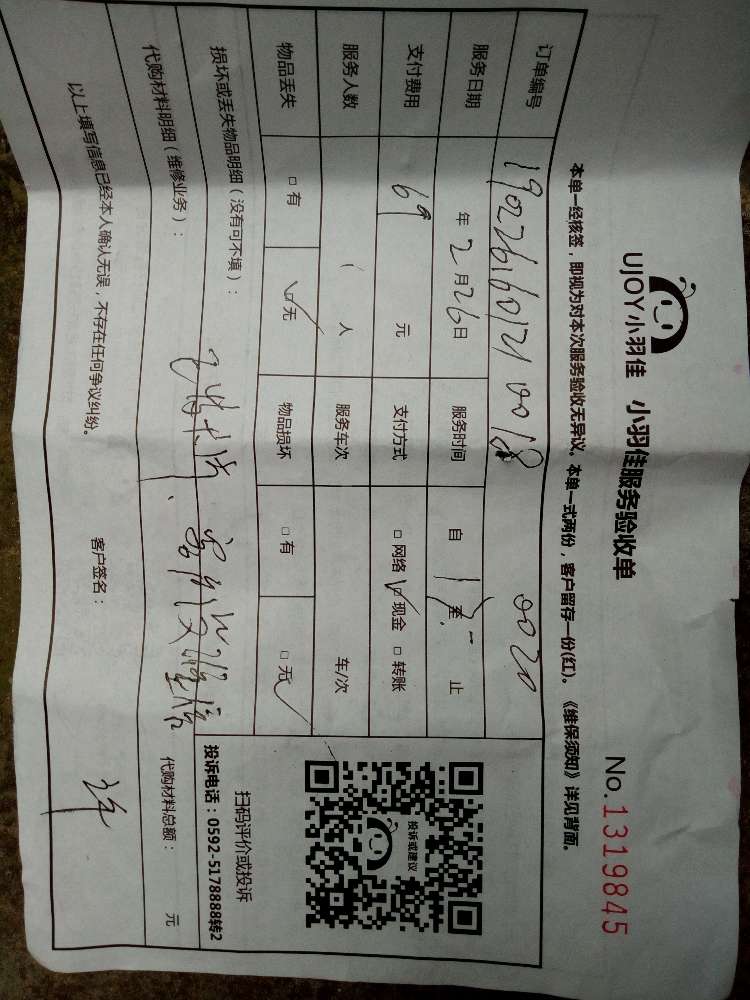 UJOY小羽佳 小羽佳服务验收单 No.1319845
本单一经核签，即视为对本次服务验收无异议。本单一式两份，客户留存一份(红)。《维保须知》详见背面。
订单编号 190226160121 0018 0020
服务日期 年 2 月 26 日 服务时间 自 至 止
支付费用 69 元 支付方式 □网络 ☑现金 □转账
服务人数 1 人 服务车次 车/次
物品丢失 □有 ☑无 物品损坏 □有 ☑无
损坏或丢失物品明细（没有可不填）：
代购材料明细（维修业务）： 代购材料总额： 元
以上填写信息已经本人确认无误，不存在任何争议纠纷。 客户签名：
投诉或建议
扫码评价或投诉
投诉电话：0592-5178888转2